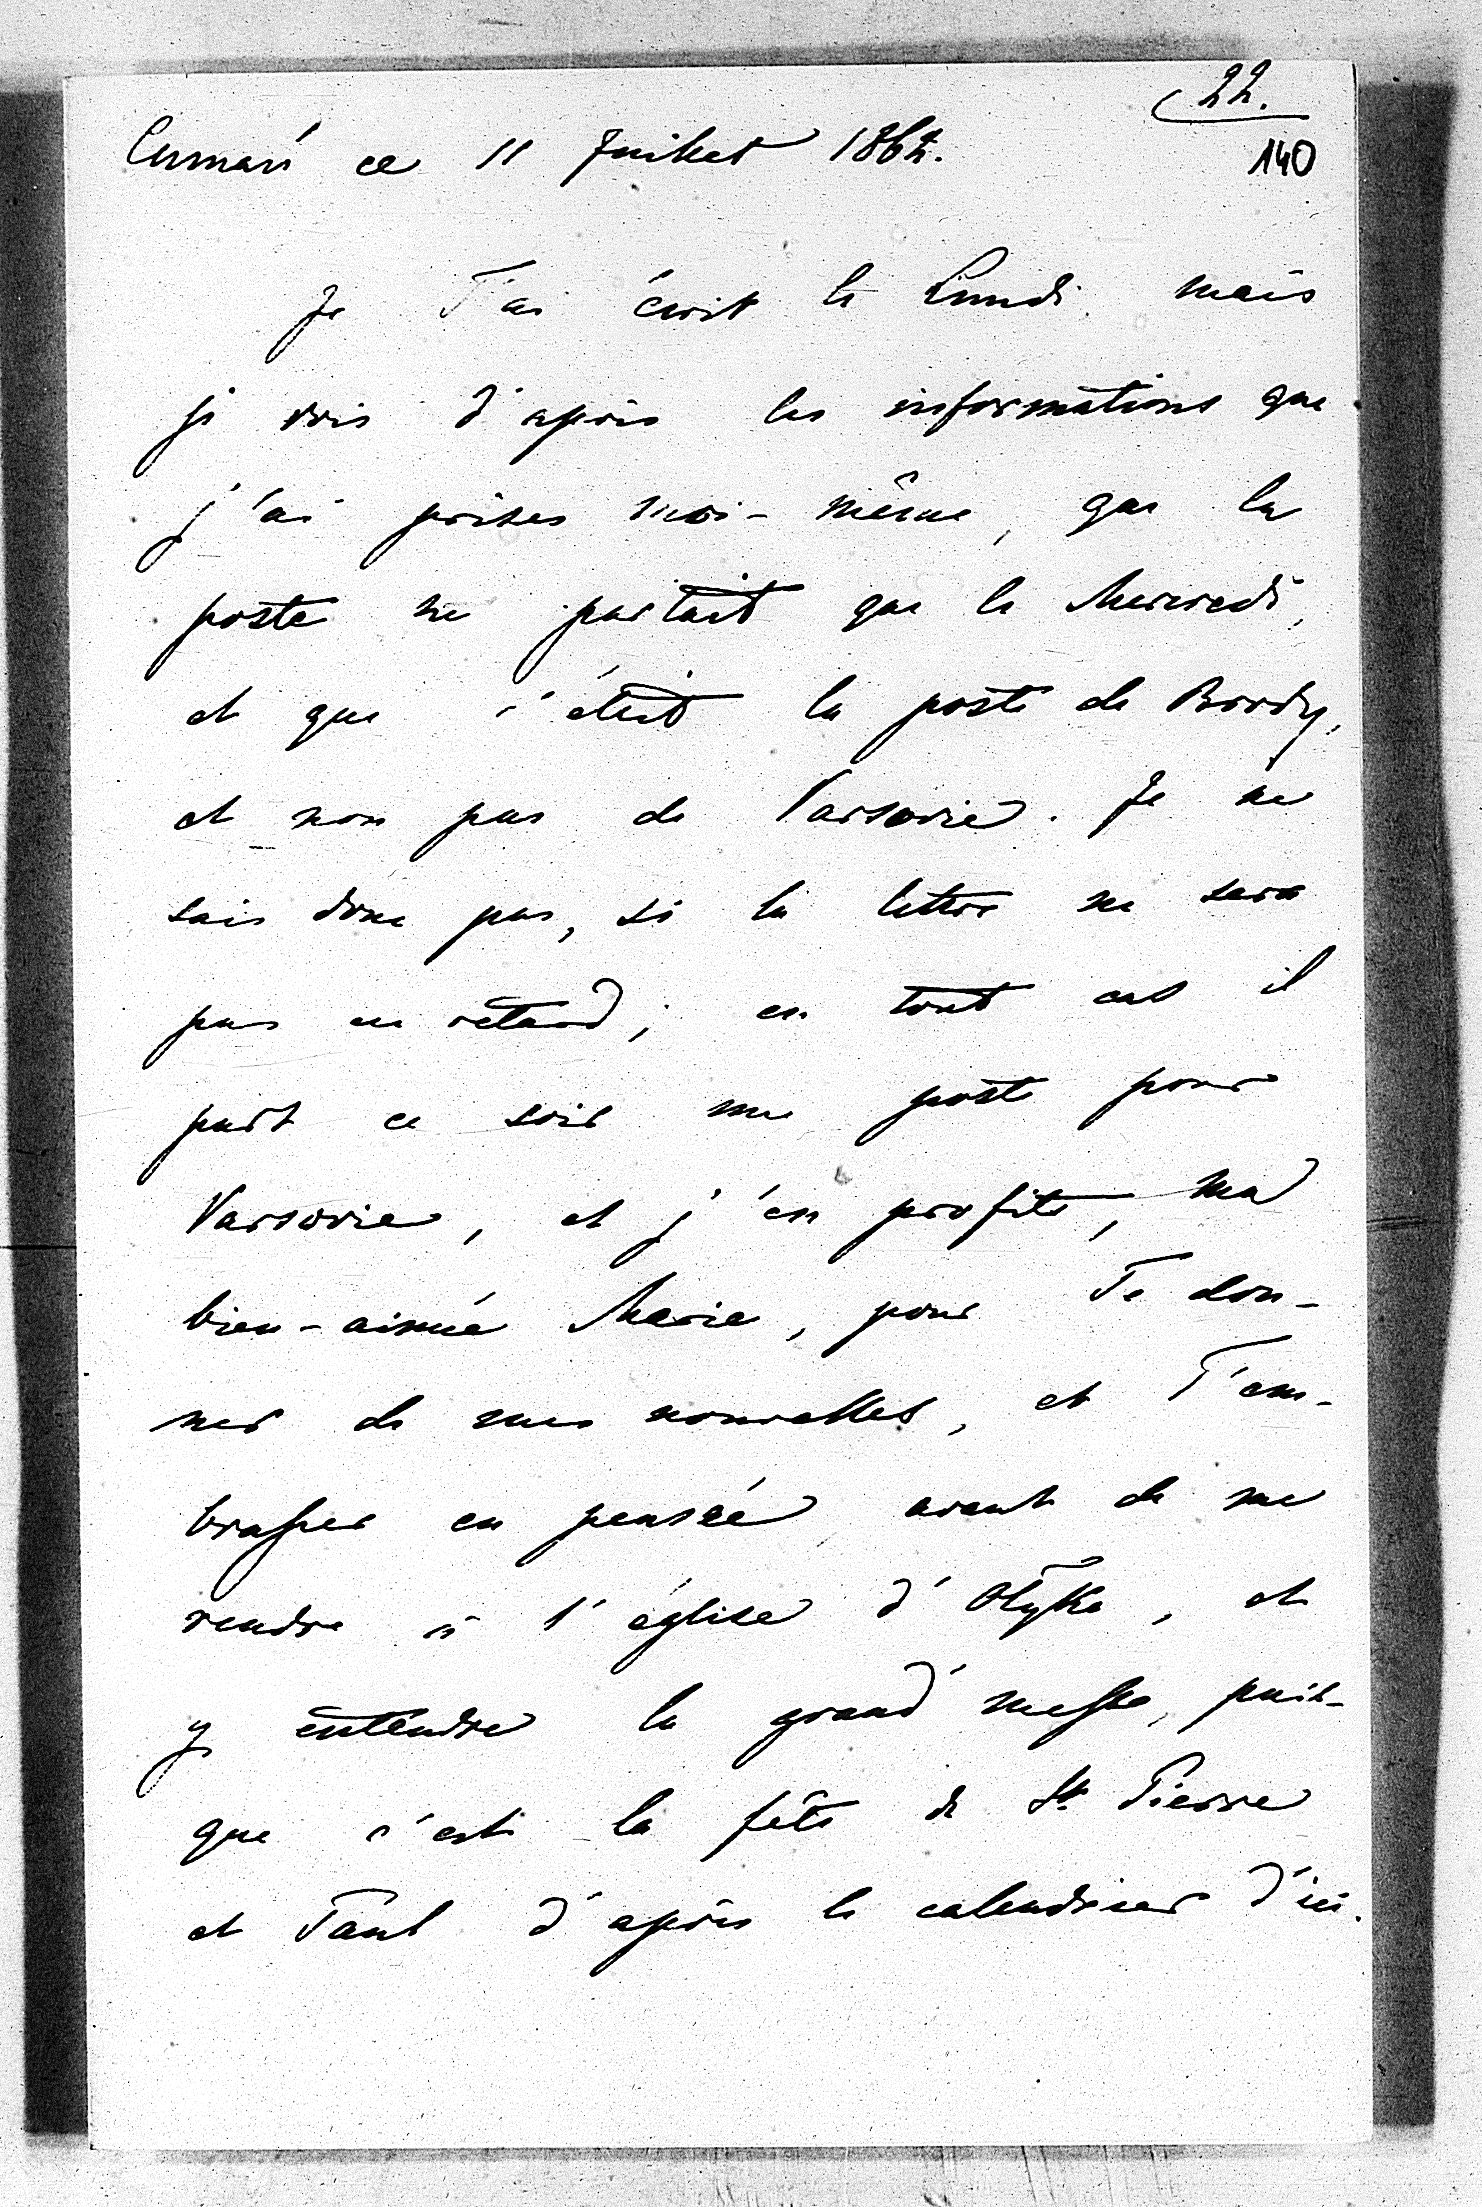 22.
140
Cumań ce 11 Juillet 1862.
Je T'ai écrit le Lundi, mais
je vois d'après les informations que
j'ai prises moi-même, que la
poste ne partait que le Mercredi,
et que c'était la poste de Brody,
et non pas de Varsovie. Je ne
sais donc pas, si la lettre ne sera
pas en retard; en tout cas il
part ce soir une poste pour
Varsovie, et j'en profite, ma
bien-aimée Marie, pour Te don-
ner de mes nouvelles, et T'em-
brasser en pensée avant de me
rendre à l'église d'Ołyka, et
y entendre la grand'messe, puis-
que c'est la fête de St. Pierre
et Paul d'après le calendrier d'ici.